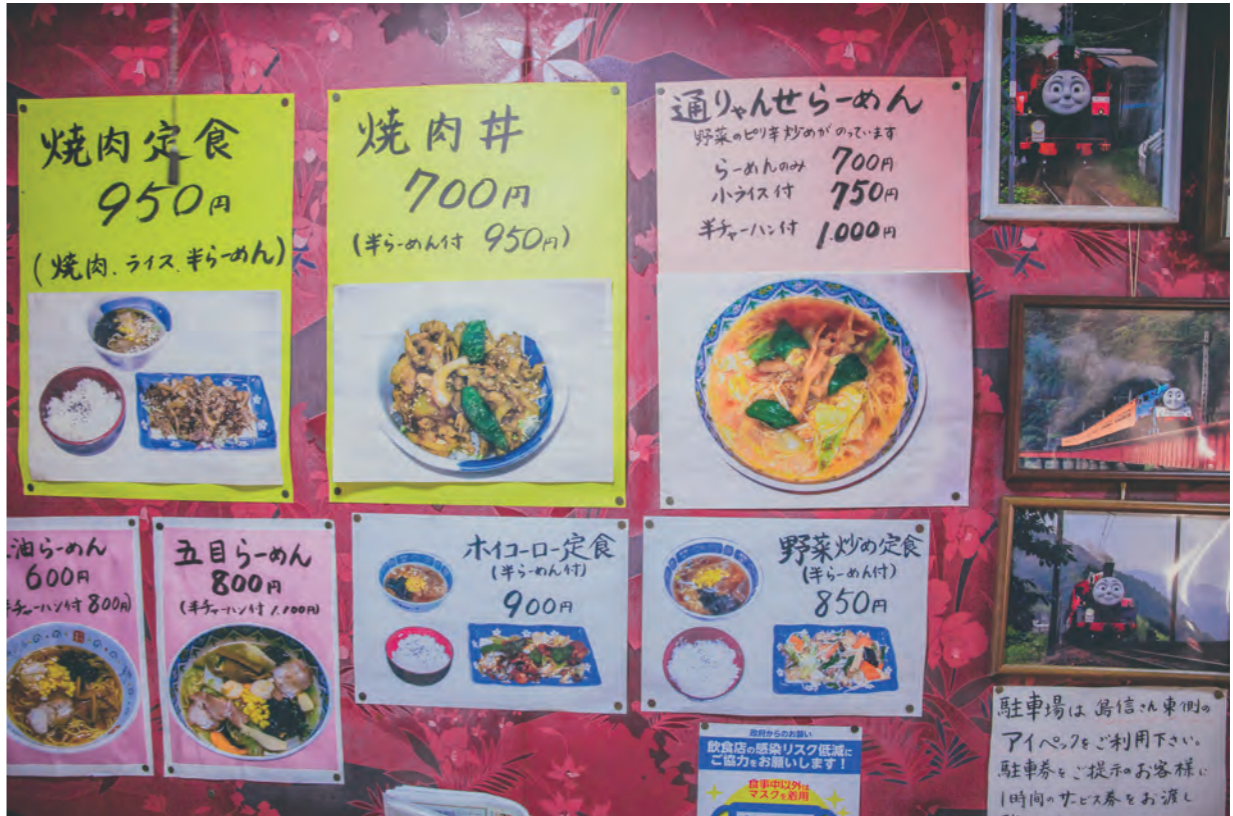 焼肉定食
950円
(焼肉、ライス、半らーめん)
焼肉丼
700円
(半らーめん付 950円)
通りゃんせらーめん
野菜のピリ辛炒めがのっています
らーめんのみ 700円
小ライス付 750円
半チャーハン付 1,000円
油らーめん
600円
半チャーハン付 800円)
五目らーめん
800円
(半チャーハン付 1,100円)
ホイコーロー定食
(半らーめん付)
900円
野菜炒め定食
(半らーめん付)
850円
政府からのお願い
飲食店の感染リスク低減に
ご協力をお願いします!
食事中以外は
マスクを着用
駐車場は 島信さん東側の
アイペックをご利用下さい。
駐車券をご提示のお客様に
1時間のサービス券をお渡し